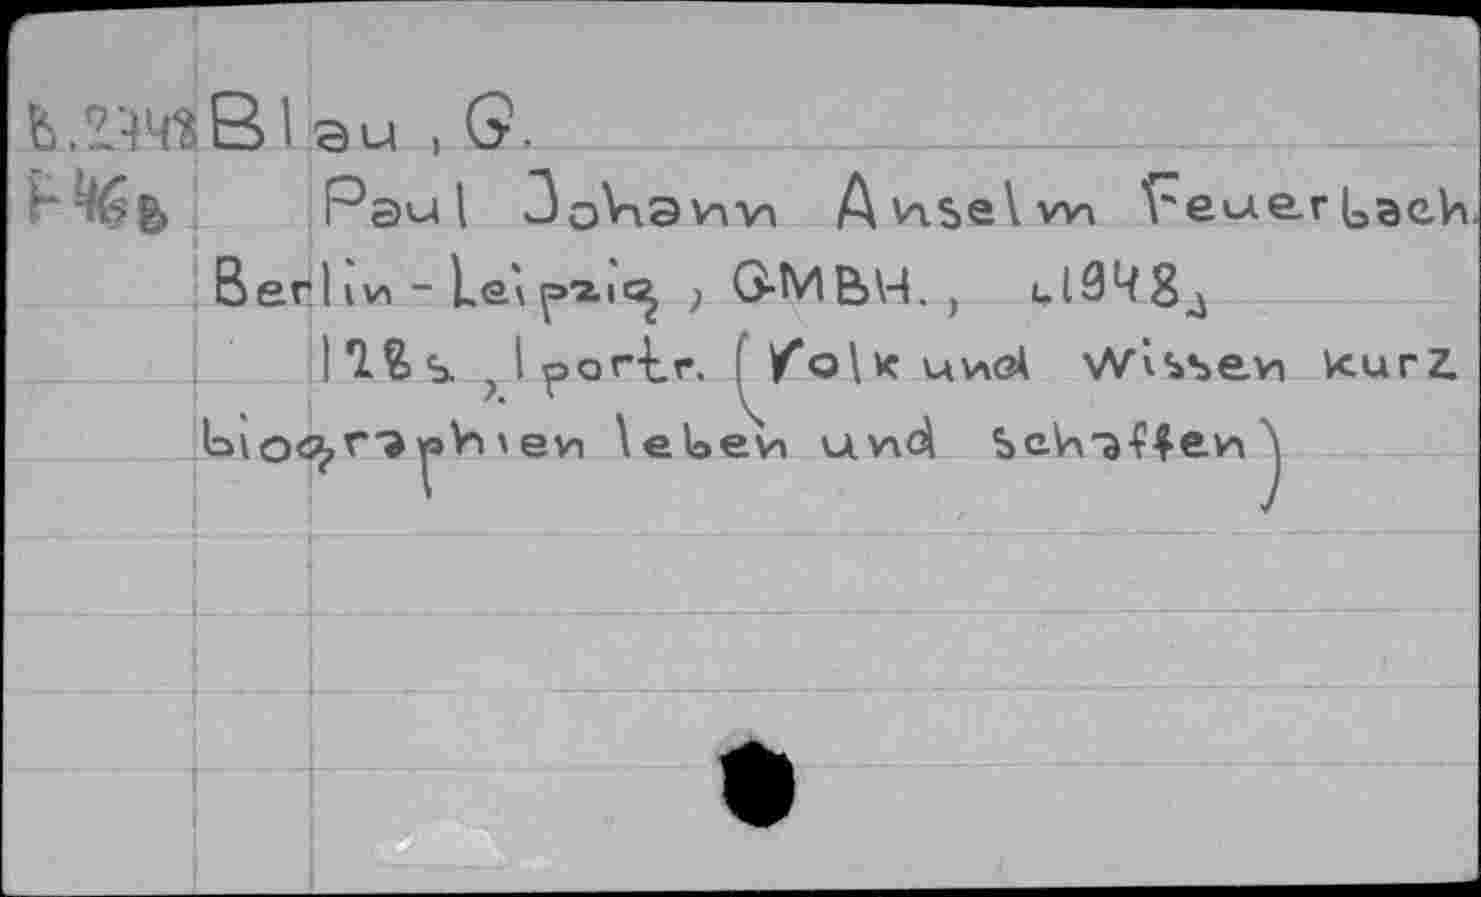 B.2748 Blau, G.
F46B Paul Johann Anselvm Feuerbach
Berlin - Leipzig ; GMBH., c1948;
128 s., 1 portr. (Volk und Wissen kurz
biographien leben und schaffen)